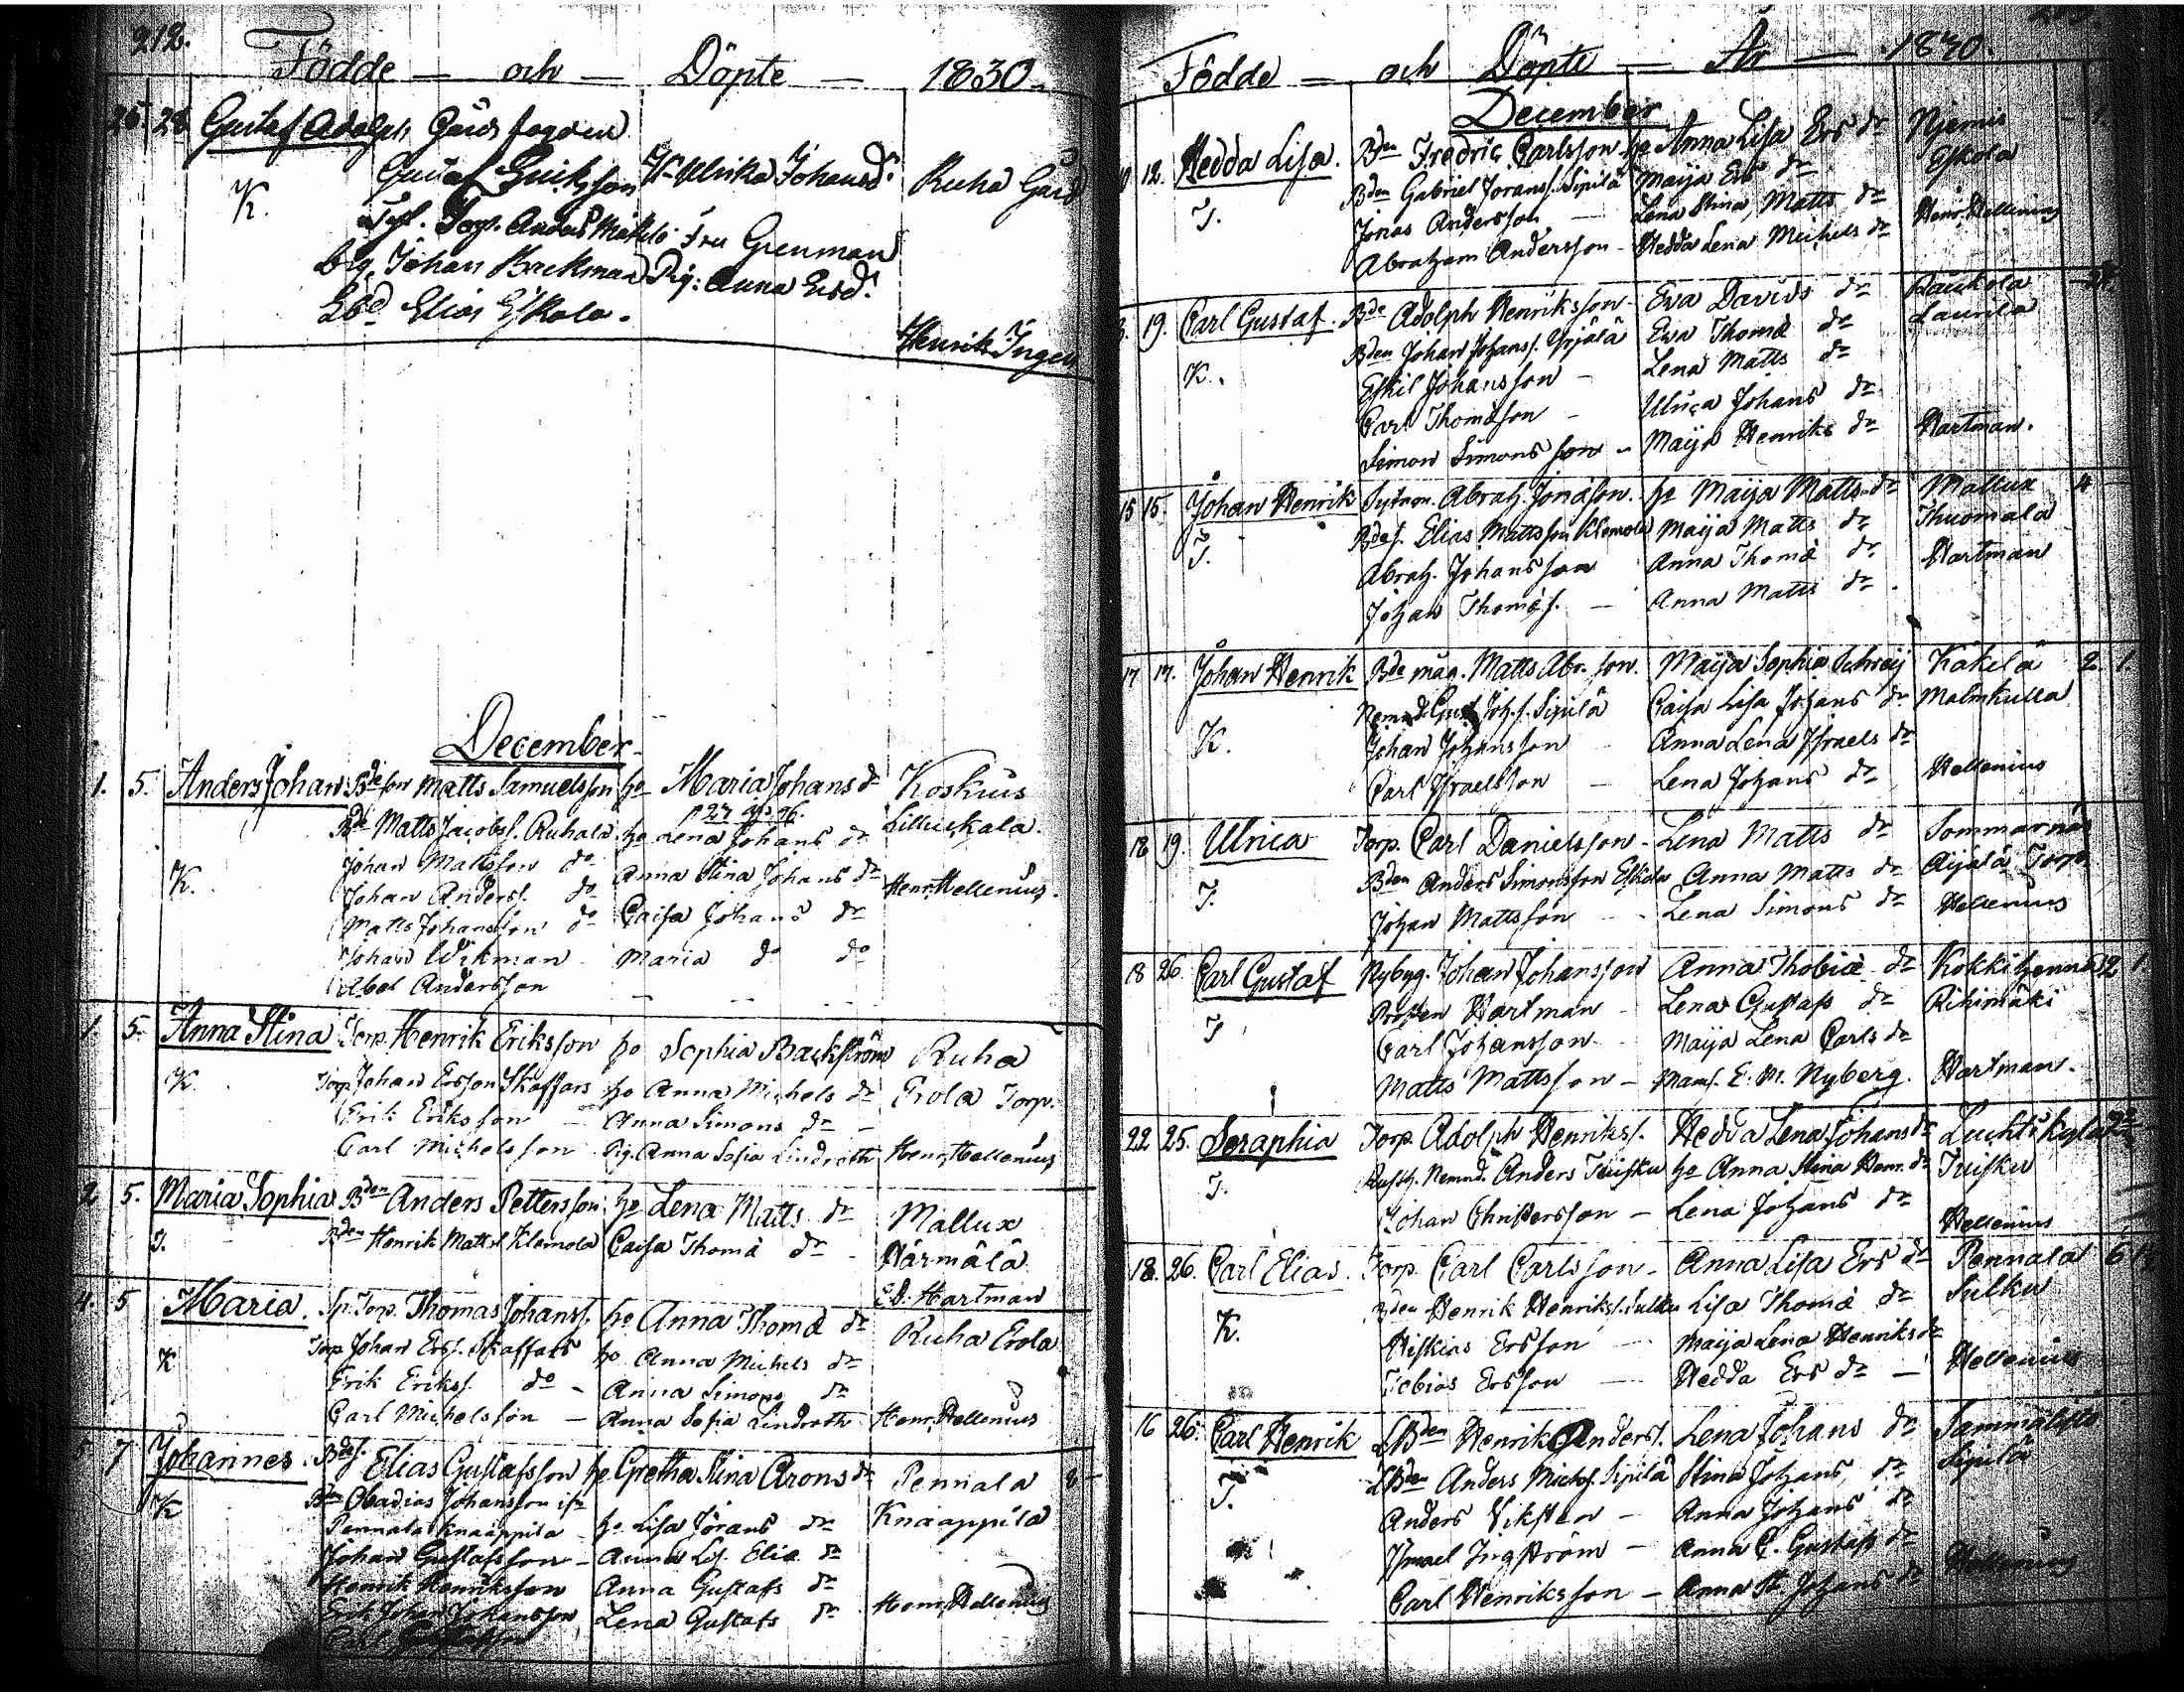 212.
Födde — och — Döpte — 1830.
25. 28 Gustaf Adolph Gårds fogden
Gustaf Eriksson H. Ulrika Johansd. Ruha Gård
K.
Torp. Anders Mäkelä Fru Grenman
Johan Backman Pig. Anna Ersd.
Elias Eskola.
Henrik
December.
1. 5. Anders Johan Bde son Matts Samuelsson ho Maria Johans dr Koskius
27
Bde Matts Jacobs. Ruhala ho Lena Johans dr Lilluskala.
Johan Mattsson do Anna Stina Johans dr
K. Johan Anders. do Henr. Hellenius.
Matts Johansson do Caisa Johans dr
Johan Wikman Maria do do
Abel Andersson
1. 5. Anna Stina Torp. Henrik Eriksson ho Sophia Backström Ruha
K. Torp Johan Ersson Skaffars ho Anna Michels dr Erola Torp.
Erik Eriksson — Anna Simons dr
Carl Michelsson Pig. Anna Sofia Lindroth Henr. Hellenius
2 5. Maria Sophia Bden Anders Pettersson ho Lena Matts dr Mallux
T. Bden Henrik Matts. Klemola Caisa Thomæ dr Härmälä
Hartman
4. 5 Maria. Sp. Torp. Thomas Johans. ho Anna Thomæ dr Ruha Erola
K Torp Johan Ers. Skaffars ho Anna Michels dr
Erik Eriks. do - Anna Simons dr
Carl Michelsson — Anna Sofia Lindroth Henr. Hellenius
5. 7 Johannes Bdes. Elias Gustafsson ho Gretha Stina Arons dr Pennala 8
K Bden Obadias Johansson ifr
Pennala Knaappila ho Lisa Jörans dr Knaappila
Johan Gustafsson — Anna Lis. Eliæ dr
Henrik Henriksson Anna Gustafs dr
Erik Johan Johansson Lena Gustafs dr Henr. Hellenius
Födde — och Döpte — År — 1830.
December
12. Hedda Lisa. Bdn Fredric Carlsson ho Anna Lisa Ers dr Njemis 1.
Bden Gabriel Jorans. Sipilä Maija Ers dr Eskola
T. Jonas Andersson — Lena Stina Matts dr
Abraham Andersson — Hedda Lena Michels dr Henr. Hellenius
19. Carl Gustaf. Bde Adolph Henriksson — Eva Davids dr Paukola
Bden Johan Johans. Yrjälä Eva Thomæ dr Laurila
K. Eskil Johansson — Lena Matts dr
Carl Thomæson — Ulrica Johans dr
Simon Simonsson — Maija Henriks dr Hartman.
15 15. Johan Henrik Sytnin. Abrah. Jonæson. ho Maija Matts dr Mallux 4
T. Bdes. Elias Mattsson Klemola Maija Matts dr Thuomala
Abrah. Johansson Anna Thomæ dr Hartman
Johan Thomæs. — Anna Matts dr
17 17. Johan Henrik Bde måg. Matts Abr. son. Maija Sophia Schreij Käkelä 2. 1.
Nemnd. Gust. Joh. s. Sipilä Caisa Lisa Johans dr Malmkulla
K. Johan Johansson — Anna Lena Israels dr
Carl Israelsson — Lena Johans dr Hellenius
18 19. Ulrica Torp. Carl Danielsson — Lena Matts dr Sommarnäs
Bden Anders Simonsson Eskola Anna Matts dr Äijälä Torp.
T. Johan Mattsson — Lena Simons dr Hellenius
18 26. Carl Gustaf Nybyg. Johan Johansson Anna Thobiæ dr 2 1.
Prosten Hartman Lena Gustafs dr Rihimäki
T Carl Johansson — Maija Lena Carls dr
Matts Mattsson — Mams. E. M. Nyberg. Hartman.
22 25. Seraphia Torp. Adolph Henriks. Hedda Lena Johans dr Luchtikylä
T. Rusth. Nemnd. Anders Tuisku ho Anna Stina Henr. dr Tuisku
Johan Christersson — Lena Johans dr Hellenius
18. 26. Carl Elias. Torp. Carl Carlsson — Anna Lisa Ers dr Pennala 6
Bden Henrik Henriks. Sulku Lisa Thomæ dr Sulku
K. Hiskias Ersson — Maija Lena Henriks dr
Tobias Ersson — Hedda Ers dr — Hellenius
16 26. Carl Henrik LBden Henrik Anders. Lena Johans dr Sammalisto
LBden Anders Michels. Sipilä Stina Johans dr Sipilä
T. Anders Viksten — Anna Johans dr
Ismael Ingström — Anna C. Gustafs dr
Carl Henriksson — Anna St. Johans dr Hellenius